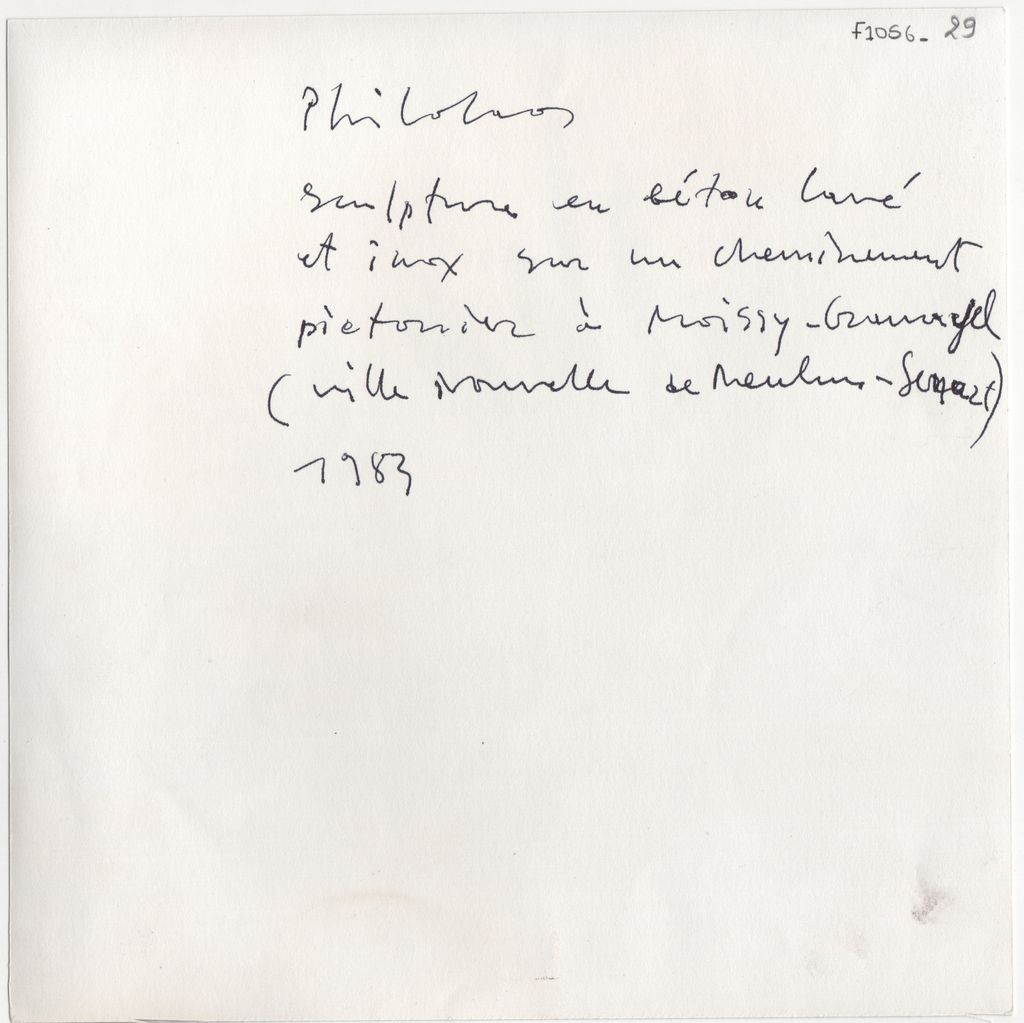 F1056- 29
Philolaos
sculptures en béton lavé
et inox sur un cheminement
pietonnier à Moissy-Cramayel
(ville nouvelle de Meulun-Senart)
1983